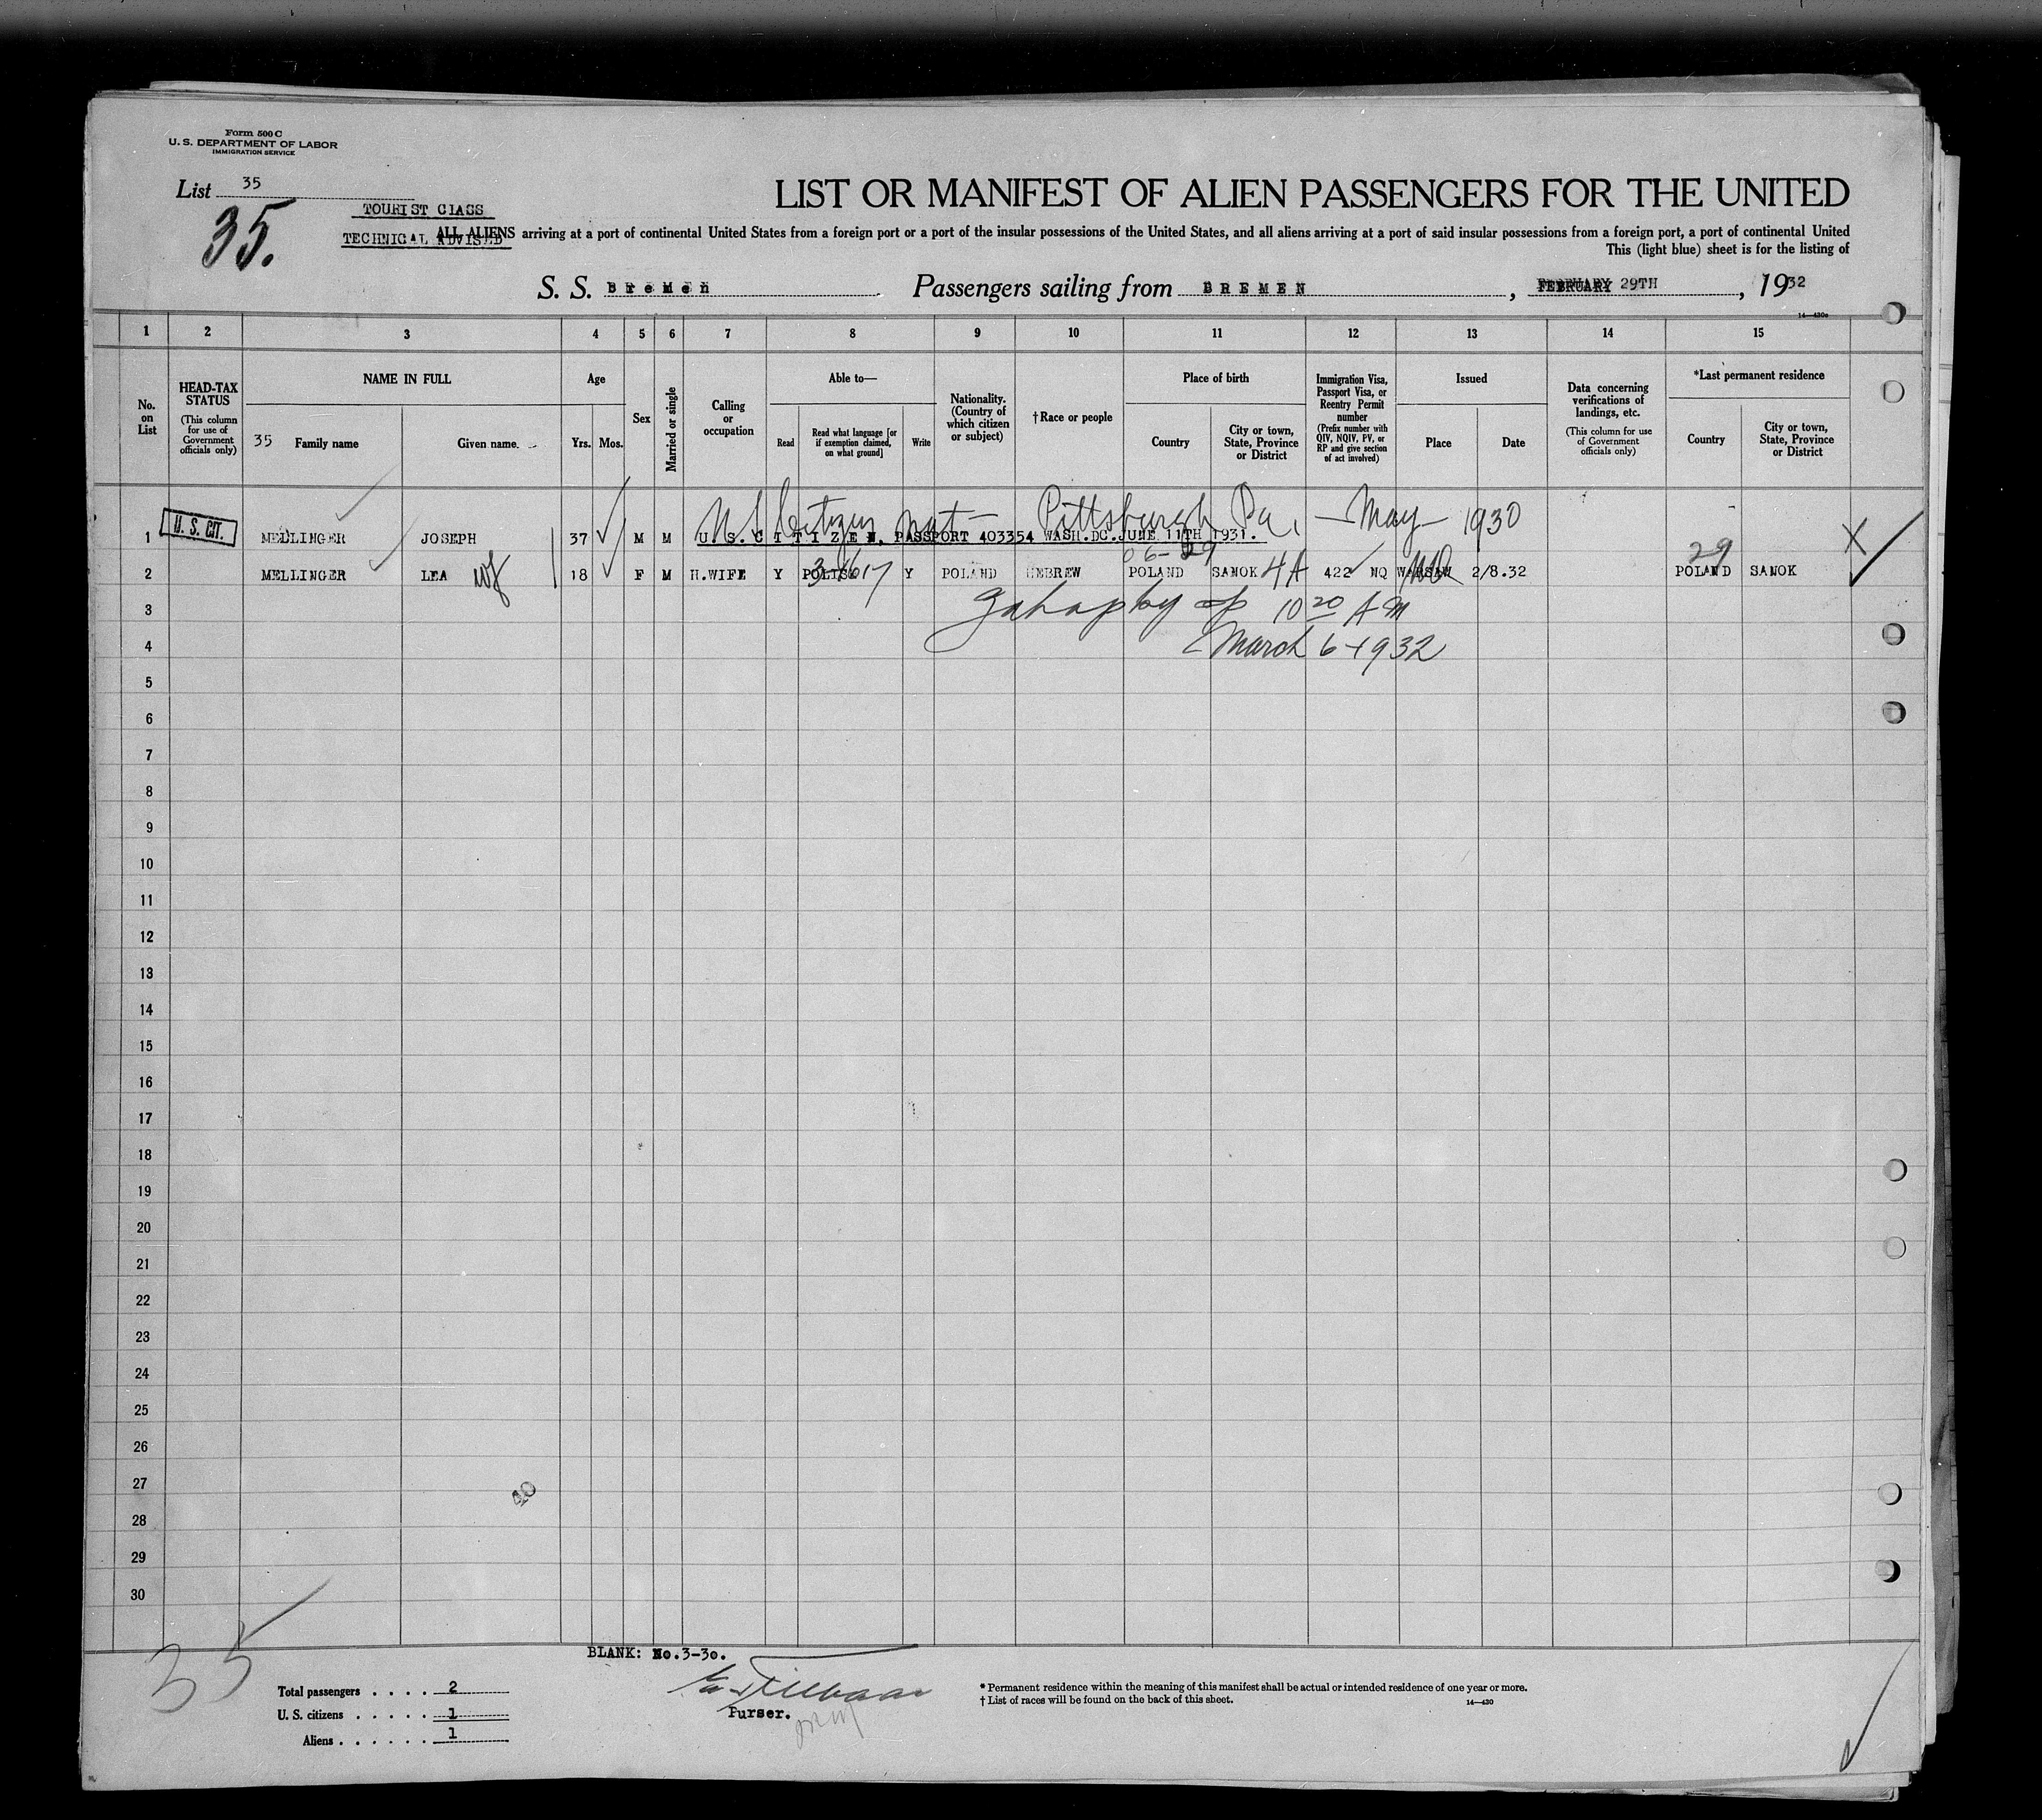 Form 500 C
U. S. DEPARTMENT OF LABOR
IMMIGRATION SERVICE
List 35
35.
TOURIST CLASS
TECHNICAL ADVISED
LIST OR MANIFEST OF ALIEN PASSENGERS FOR THE UNITED
ALL ALIENS arriving at a port of continental United States from a foreign port or a port of the insular possessions of the United States, and all aliens arriving at a port of said insular possessions from a foreign port, a port of continental United
This (light blue) sheet is for the listing of
S. S. Bremen Passengers sailing from BREMEN, FEBRUARY 29TH, 1932
14—430c
1 2 3 4 5 6 7 8 9 10 11 12 13 14 15
No. on List
HEAD-TAX STATUS
(This column for use of Government officials only)
NAME IN FULL
35 Family name
Given name.
Age
Yrs. Mos.
Sex
Married or single
Calling or occupation
Able to—
Read
Read what language [or if exemption claimed, on what ground]
Write
Nationality. (Country of which citizen or subject)
†Race or people
Place of birth
Country
City or town, State, Province or District
Immigration Visa, Passport Visa, or Reentry Permit number
(Prefix number with QIV, NQIV, PV, or RP and give section of act involved)
Issued
Place
Date
Data concerning verifications of landings, etc.
(This column for use of Government officials only)
*Last permanent residence
Country
City or town, State, Province or District
US Citizen nat — Pittsburgh Pa, — May — 1930
1 U. S. CIT. MELLINGER JOSEPH 37 M M U.S.CITIZEN, PASSPORT 403354 WASH.DC.JUNE 11TH 1931. X
06-29 29
2 MELLINGER LEA wf 18 F M H.WIFE Y POLISH Y POLAND HEBREW POLAND SANOK 4A 422 NQ WARSAW 2/8.32 POLAND SANOK
3 10 20 AM
4 March 6 1932
5
6
7
8
9
10
11
12
13
14
15
16
17
18
19
20
21
22
23
24
25
26
27
28
29
30
40
35
BLANK: No.3-30.
Total passengers . . . . 2
U. S. citizens . . . . . 1
Aliens . . . . . . 1
Purser.
* Permanent residence within the meaning of this manifest shall be actual or intended residence of one year or more.
† List of races will be found on the back of this sheet.
14—430